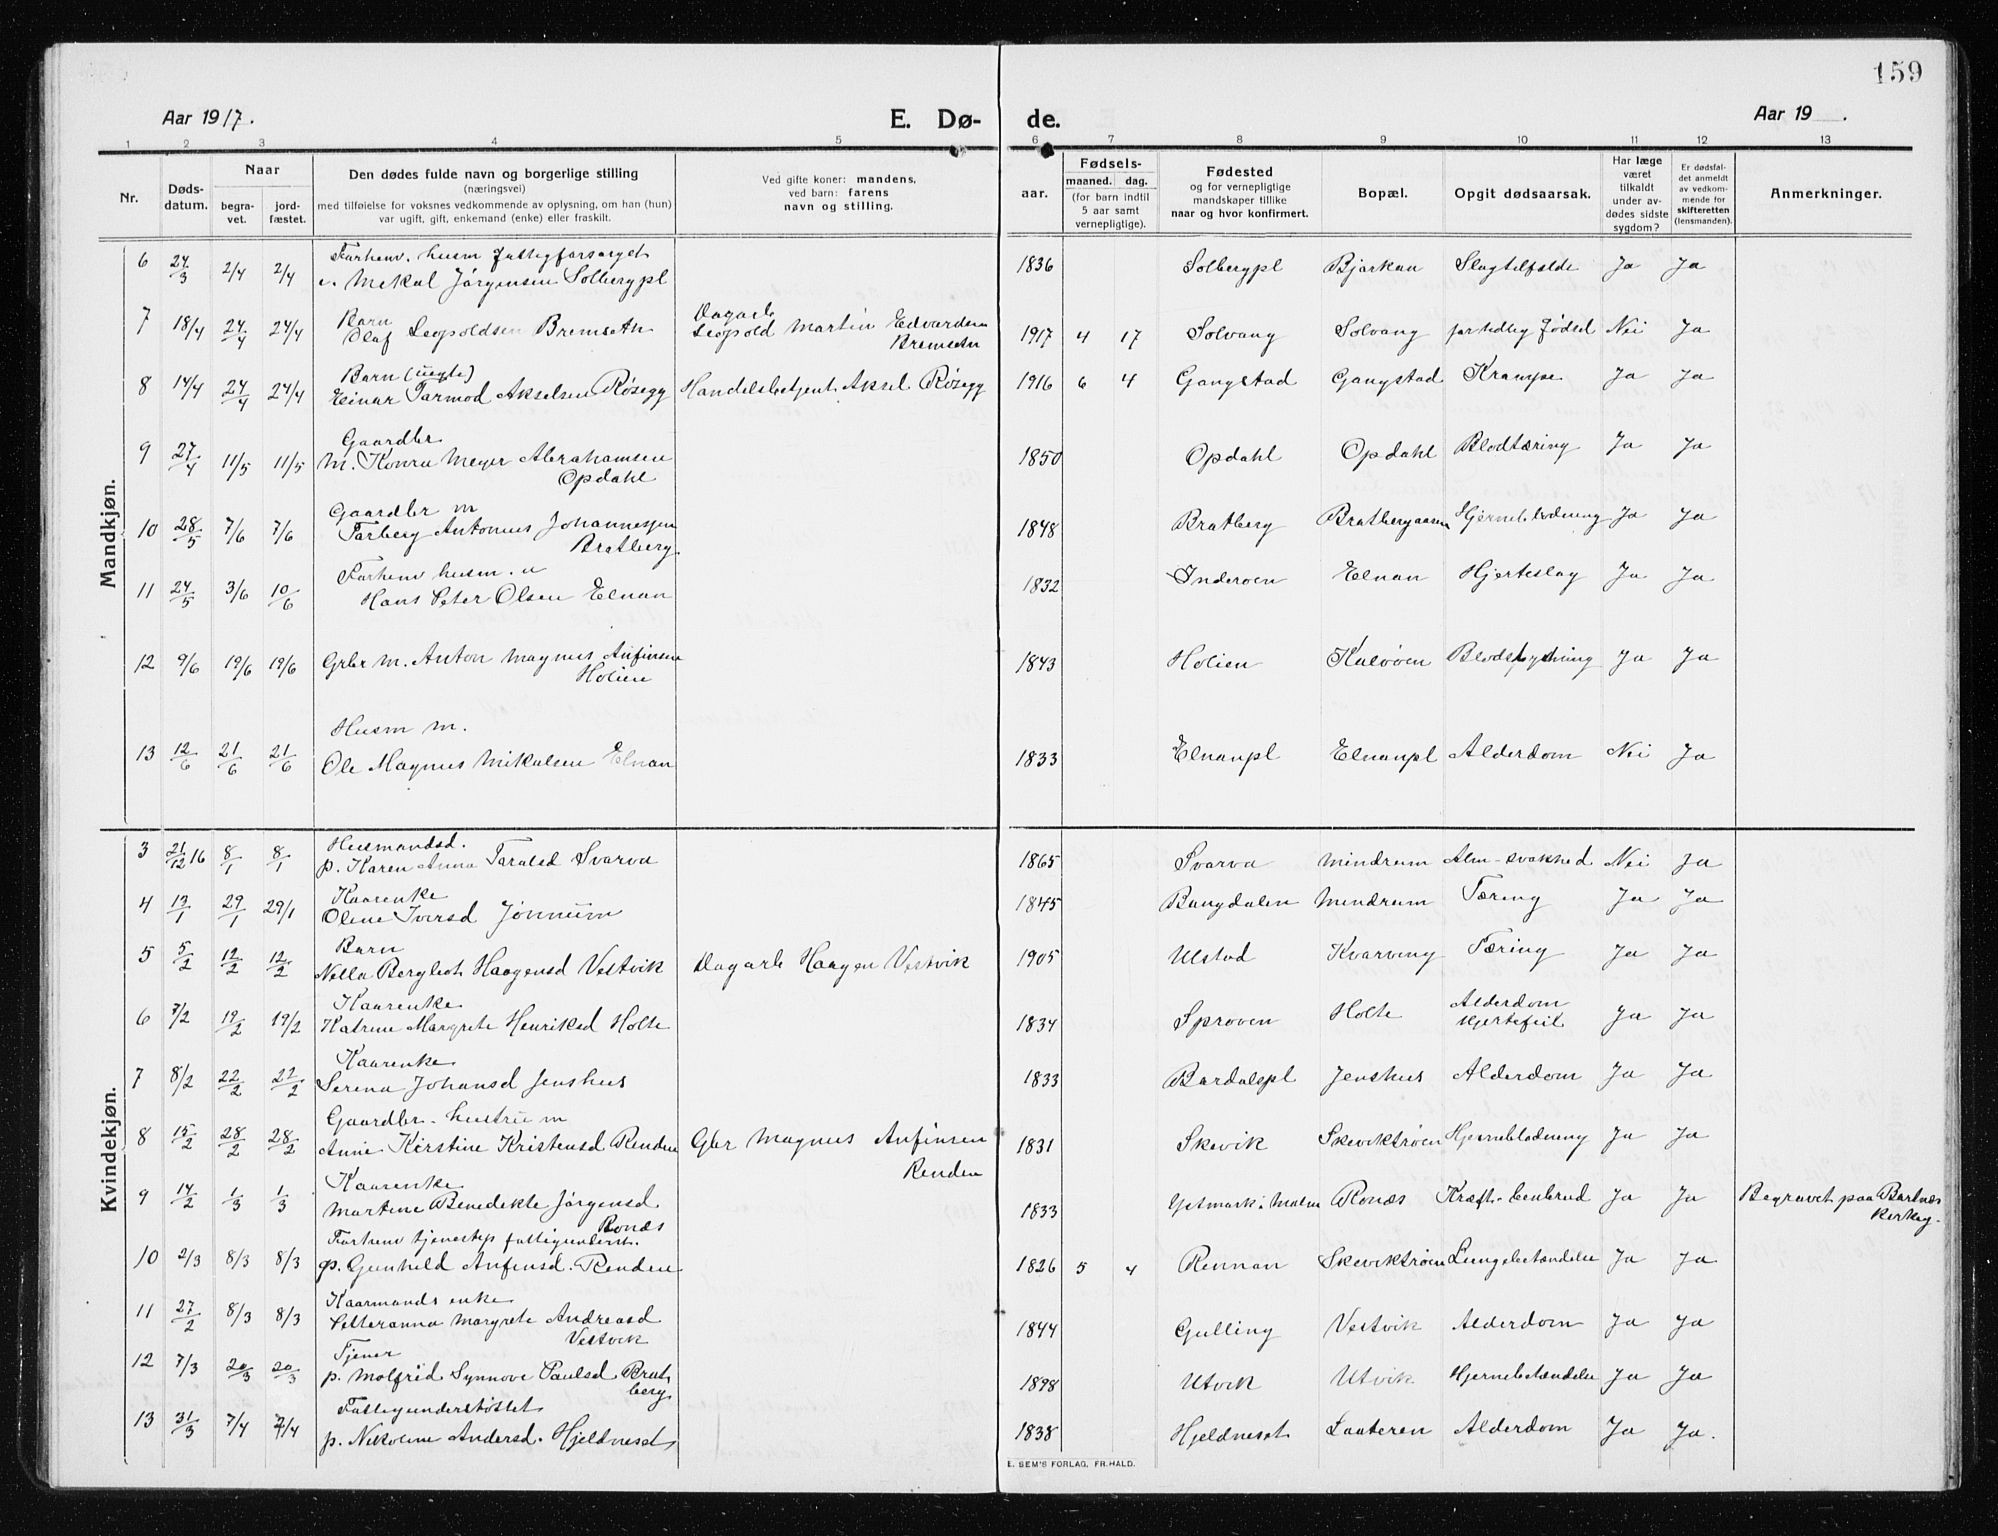 159
Aar 1917. E. Dø- de. Aar 19 .
1 2 3 4 5 6 7 8 9 10 11 12 13
Nr. Døds-datum. Naar begra-vet. jord-fæstet.
Den dødes fulde navn og borgerlige stilling
(næringsvei)
med tilføielse for voksnes vedkommende av oplysning, om han (hun)
var ugift, gift, enkemand (enke) eller fraskilt.
Ved gifte koner: mandens,
ved barn: farens
navn og stilling.
Fødsels-
aar. maaned. dag.
(for barn indtil
5 aar samt
vernepligtige).
Fødested
og for vernepligtige
mandskaper tillike
naar og hvor konfirmert.
Bopæl.
Opgit dødsaarsak.
Har læge
været
tilkaldt
under av-
dødes sidste
sygdom?
Er dødsfal-
det anmeldt
av vedkom-
mende for
skifteretten
(lensmanden).
Anmerkninger.
Mandkjøn.
Forhenv. husm fattigforsørget
6 24/3 2/4 2/4 Mekal Jørgensen Solbergpl 1836 Solbergpl Bjørkan Slagtilfælde Ja Ja
Barn Dagarb
7 18/4 24/4 24/4 Olaf Leopoldsen Bremseth Leopold Martin Edvardsen 1917 4 17 Solvang Solvang for tidlig fødsel Nei Ja
Bremseth
Barn (uegte)
8 14/4 24/4 24/4 Einar Tormod Akselsen Røsegg Handelsbetjent Aksel Røsegg 1916 6 4 Gangstad Gangstad Krampe Ja Ja
Gaardbr
9 27/4 11/5 11/5 m. Konru Meyer Abrahamsen 1850 Opdahl Opdahl Blodtæring Ja Ja
Opdahl
Gaardbr m
10 28/5 7/6 7/6 Torberg Antonius Johannessen 1848 Bratberg Bratbergaasen Hjerneblødning Ja Ja
Bratberg
Forhenv husm. u
11 24/5 3/6 10/6 Hans Peter Olsen Elnan 1832 Inderøen Elnan Hjerteslag Ja Ja
12 9/6 19/6 19/6 Grbr m. Anton Magnus Anfinsen 1843 Holien Kalvøen Blodspytning Ja Ja
Holien
Husm m.
13 12/6 21/6 21/6 Ole Magnus Mikalsen Elnan 1833 Elnanpl Elnanpl Alderdom Nei Ja
Kvindekjøn.
Husmandsd.
3 21/12 16 8/1 8/1 p. Karen Anna Taralsd Svarva 1865 Svarva Mindrum Alm-svakhed Nei Ja
Kaarenke
4 13/1 29/1 29/1 Oline Iversd Jønnum 1845 Bangdalen Mindrum Tæring Ja Ja
Barn
5 5/2 12/2 12/2 Nella Bergliot Haagensd Vestvik Dagarb Haagen Vestvik 1905 Ulstad Kvarving Tæring Ja Ja
Kaarenke
6 7/2 19/2 19/2 Katrine Margrete Henriksd Holte 1834 Sprøven Holte Alderdom Hjertefeil Ja Ja
Kaarenke
7 8/2 22/2 22/2 Serina Johansd Jenshus 1833 Bardalspl Jenshus Alderdom Ja Ja
Gaardbr. hustru m
8 15/2 28/2 28/2 Anne Kirstine Kristensd Renden Gbr Magnus Anfinsen 1831 Skevik Skeviktrøen Hjerneblødning Ja Ja
Renden
Kaarenke
9 14/2 1/3 1/3 Martine Benedikte Jørgensd 1833 i Malm Ronæs Kræft. Ja Ja Begravet paa Bartnes
Ronæs Kirkeg.
Forhenv tjenestep fattigunderst.
10 2/3 8/3 8/3 p. Gunhild Anfinsd. Renden 1826 5 4 Rennan Skeviktrøen Lungebetændelse Ja Ja
Kaarmands enke
11 27/2 8/3 8/3 Petteranna Margrete Andreasd 1844 Gulling Vestvik Alderdom Ja Ja
Vestvik
Tjener
12 7/3 20/3 20/3 p. Molfrid Synnøve Paulsd Brat 1898 Utvik Utvik Hjernebetændelse Ja Ja
berg
Fattigunderstøttet
13 31/3 7/4 7/4 p. Nikoline Andersd. Hjeldneset 1838 Hjeldneset Laateren Alderdom Ja Ja.
E. SEM'S FORLAG, FR.HALD.